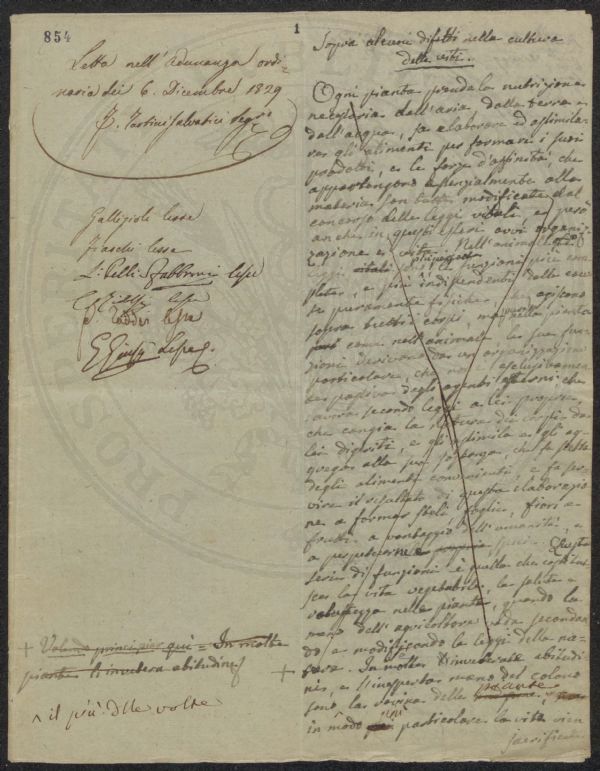 854
1
Letta nell' Adunanza ordi-
naria dei 6. Dicembre 1829
Tartini Salvatici Segr.º
Gallizioli lesse
L: Pelli Fabbroni lesse
+ Volendo principiar qui = In molte
piante
^ il più delle volte
Sopra alcuni difetti nella cultura
delle viti.
Ogni pianta prende la nutrizione
necessaria dall'aria dalla terra e
dall'acqua, fa elaborare ed assimila-
re gli alimenti per formare i suoi
prodotti, e le forze d'affinità, che
appartengono essenzialmente alla
materia son tutte modificate dal
concorso delle leggi vitali, e però
anche in questi esseri avvi organiz-
zazione e vita. Nell'animale
leggi vitali le funzioni più com-
plete, e più indipendenti dalle cau-
se puramente fisiche, che agiscono
sopra tutti i corpi, ma nella pianta
come nell'animale le sue fun-
zioni derivano da un organizzazione
particolare, che non è esclusivamen-
te passiva degli agenti esterni che
secondo leggi a lei proprie,
che cangia la natura dei corpi da
lei digeriti, e gli assimila e gli ag-
grega alla sua sostanza, che fa
degli alimenti convenienti, e fa ser-
vire il resultato di questa elaborazio-
ne a formar steli foglie, fiori e
frutti a vantaggio dell'umanità, e
a perpetuarne la propria specie. Questa
serie di funzioni è quella che costitui-
sce la vita vegetabile, la salute e
robustezza nelle piante, quando la
mano dell'agricoltore vada secondan-
do e modificando le leggi della na-
tura. In molte + inveterate abitudi-
ni, e l'inesperta mano del colono
sono la rovina delle piante,
in modo più particolare la vite vien
sacrificata